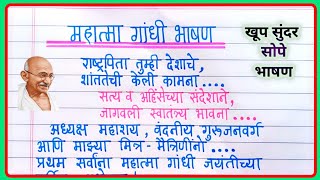 महात्मा गांधी भाषण
खूप सुंदर
सोपे
भाषण
राष्ट्रपिता तुम्ही देशाचे,
शांततेची केली कामना ....
सत्य व अहिंसेच्या संदेशाने,
जागवली स्वातंत्र्य भावना ....
अध्यक्ष महाशय, वंदनीय गुरुजनवर्ग
आणि माझ्या मित्र - मैत्रिणींनो ....
प्रथम सर्वांना महात्मा गांधी जयंतीच्या